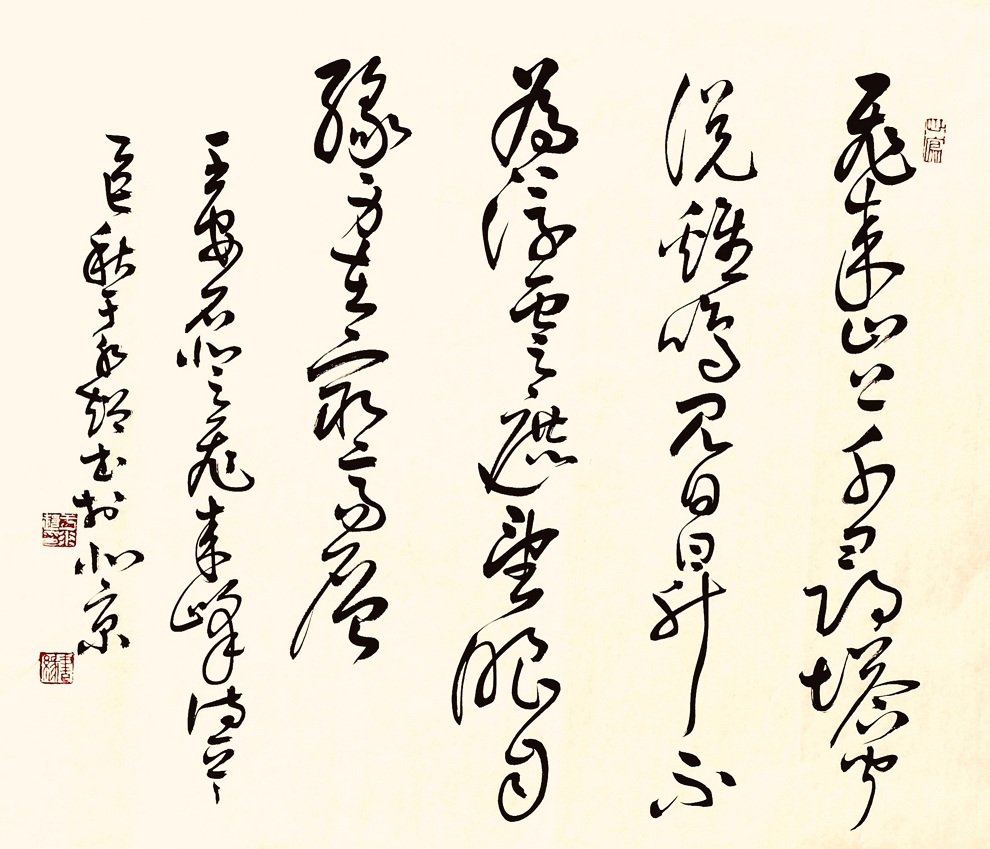 飛來山上千尋塔聞
說雞鳴見日昇不
為浮雲遮望眼自
緣身在最高層
王安石登飛來峰詩
秋于永超書於北京